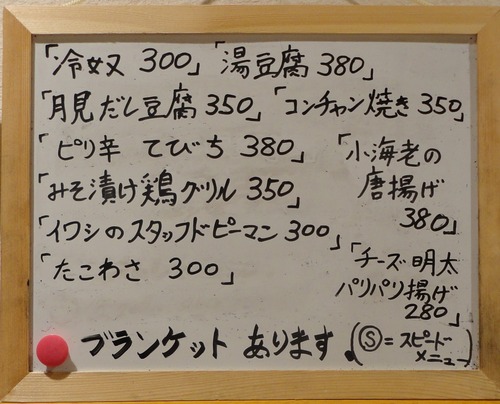 「冷奴 300」「湯豆腐 380」
「月見だし豆腐 350」「コンチャン焼き 350」
「ピリ辛 てびち 380」
「小海老の
唐揚げ
380」
「みそ漬け鶏グリル 350」
「イワシのスタッフドピーマン 300」
「たこわさ 300」
「チーズ明太
パリパリ揚げ
280」
ブランケット あります。
(Ⓢ=スピード
メニュー)